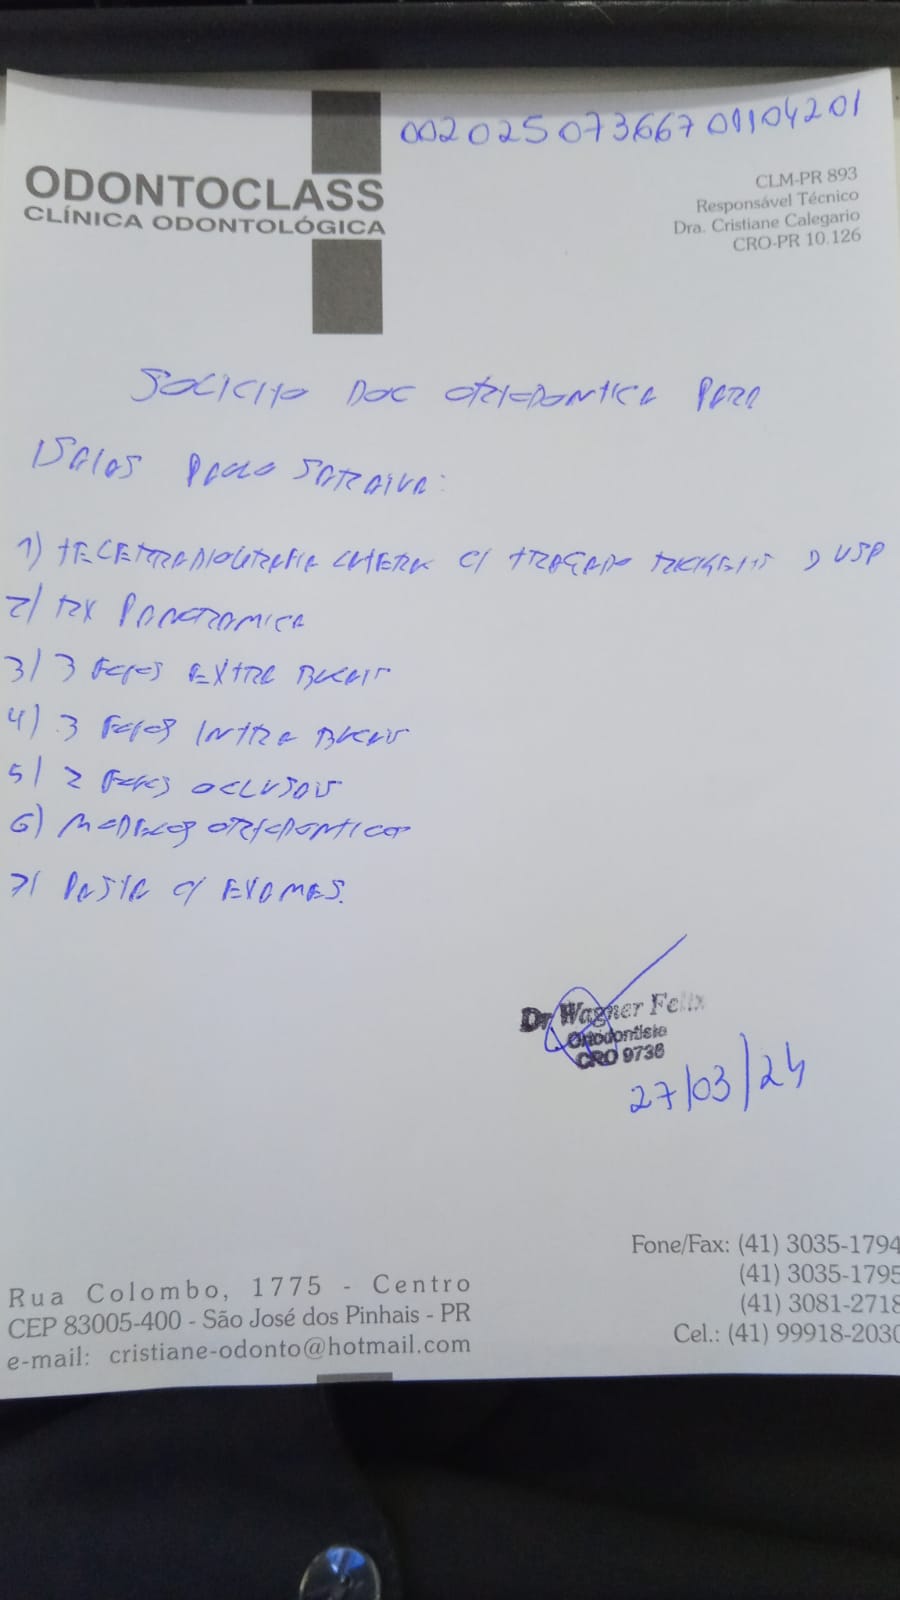 00202507366701104201
ODONTOCLASS
CLÍNICA ODONTOLÓGICA
CLM-PR 893
Responsável Técnico
Dra. Cristiane Calegario
CRO-PR 10.126
SOLICITO DOC ORTODONTICA PARA
ISAIAS PAULO SARAIVA:
1) TELERRADIOGRAFIA LATERAL C/ TRAÇADO USP
2) RX PANORAMICA
3) 3 FOTOS EXTRA BUCAIS
4) 3 FOTOS INTRA BUCAIS
5) 2 FOTOS OCLUSAIS
6) MODELOS ORTODONTICOS
7) PASTA C/ EXAMES.
Dr Wagner Felix
Ortodontista
CRO 9736
27/03/24
Rua Colombo, 1775 - Centro
CEP 83005-400 - São José dos Pinhais - PR
e-mail: cristiane-odonto@hotmail.com
Fone/Fax: (41) 3035-1794
(41) 3035-1795
(41) 3081-2718
Cel.: (41) 99918-2030